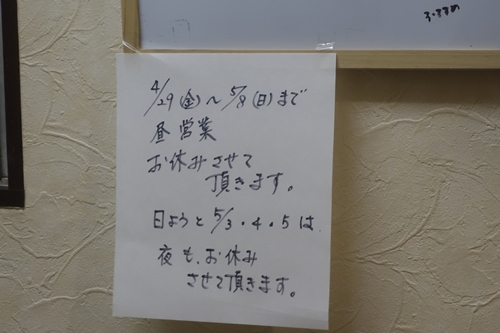 4/29(金)〜5/8(日)まで
昼営業
お休みさせて
頂きます。
日ようと5/3・4・5は
夜も、お休み
させて頂きます。